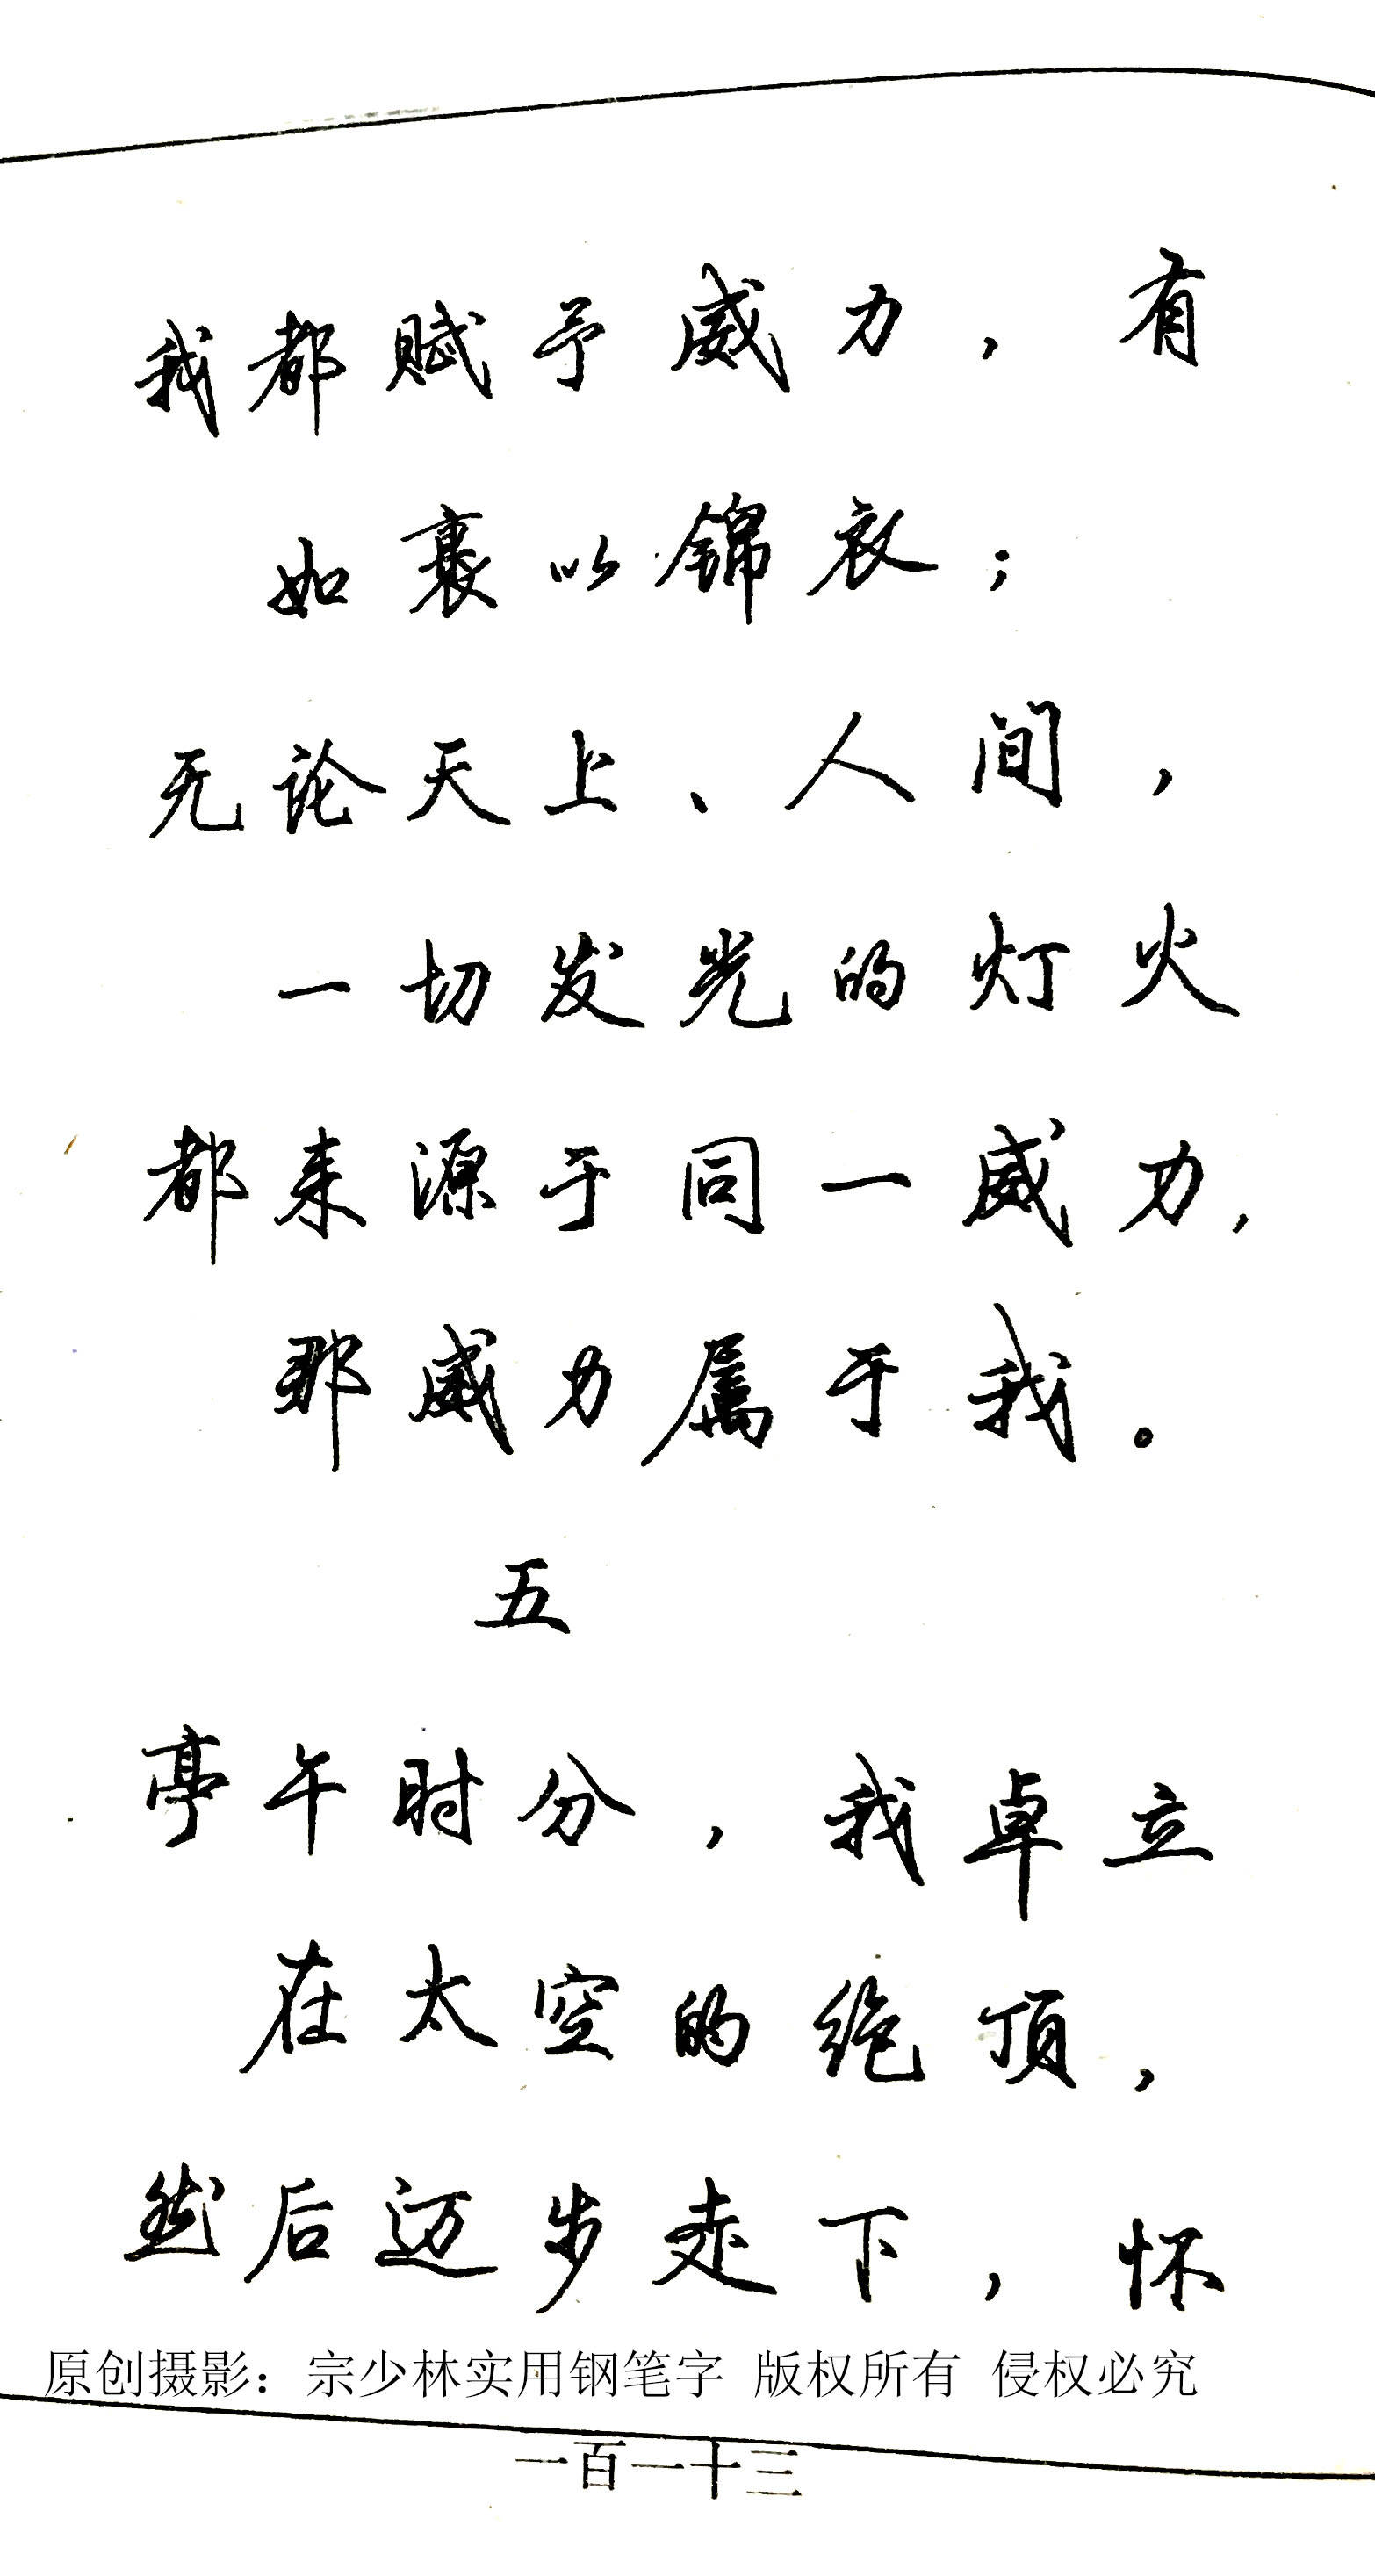 我都赋予威力，有
如裹以锦衣；
无论天上、人间，
一切发光的灯火
都来源于同一威力，
那威力属于我。
五
亭午时分，我卓立
在太空的绝顶，
然后迈步走下，怀
原创摄影：宗少林实用钢笔字 版权所有 侵权必究
一百一十三